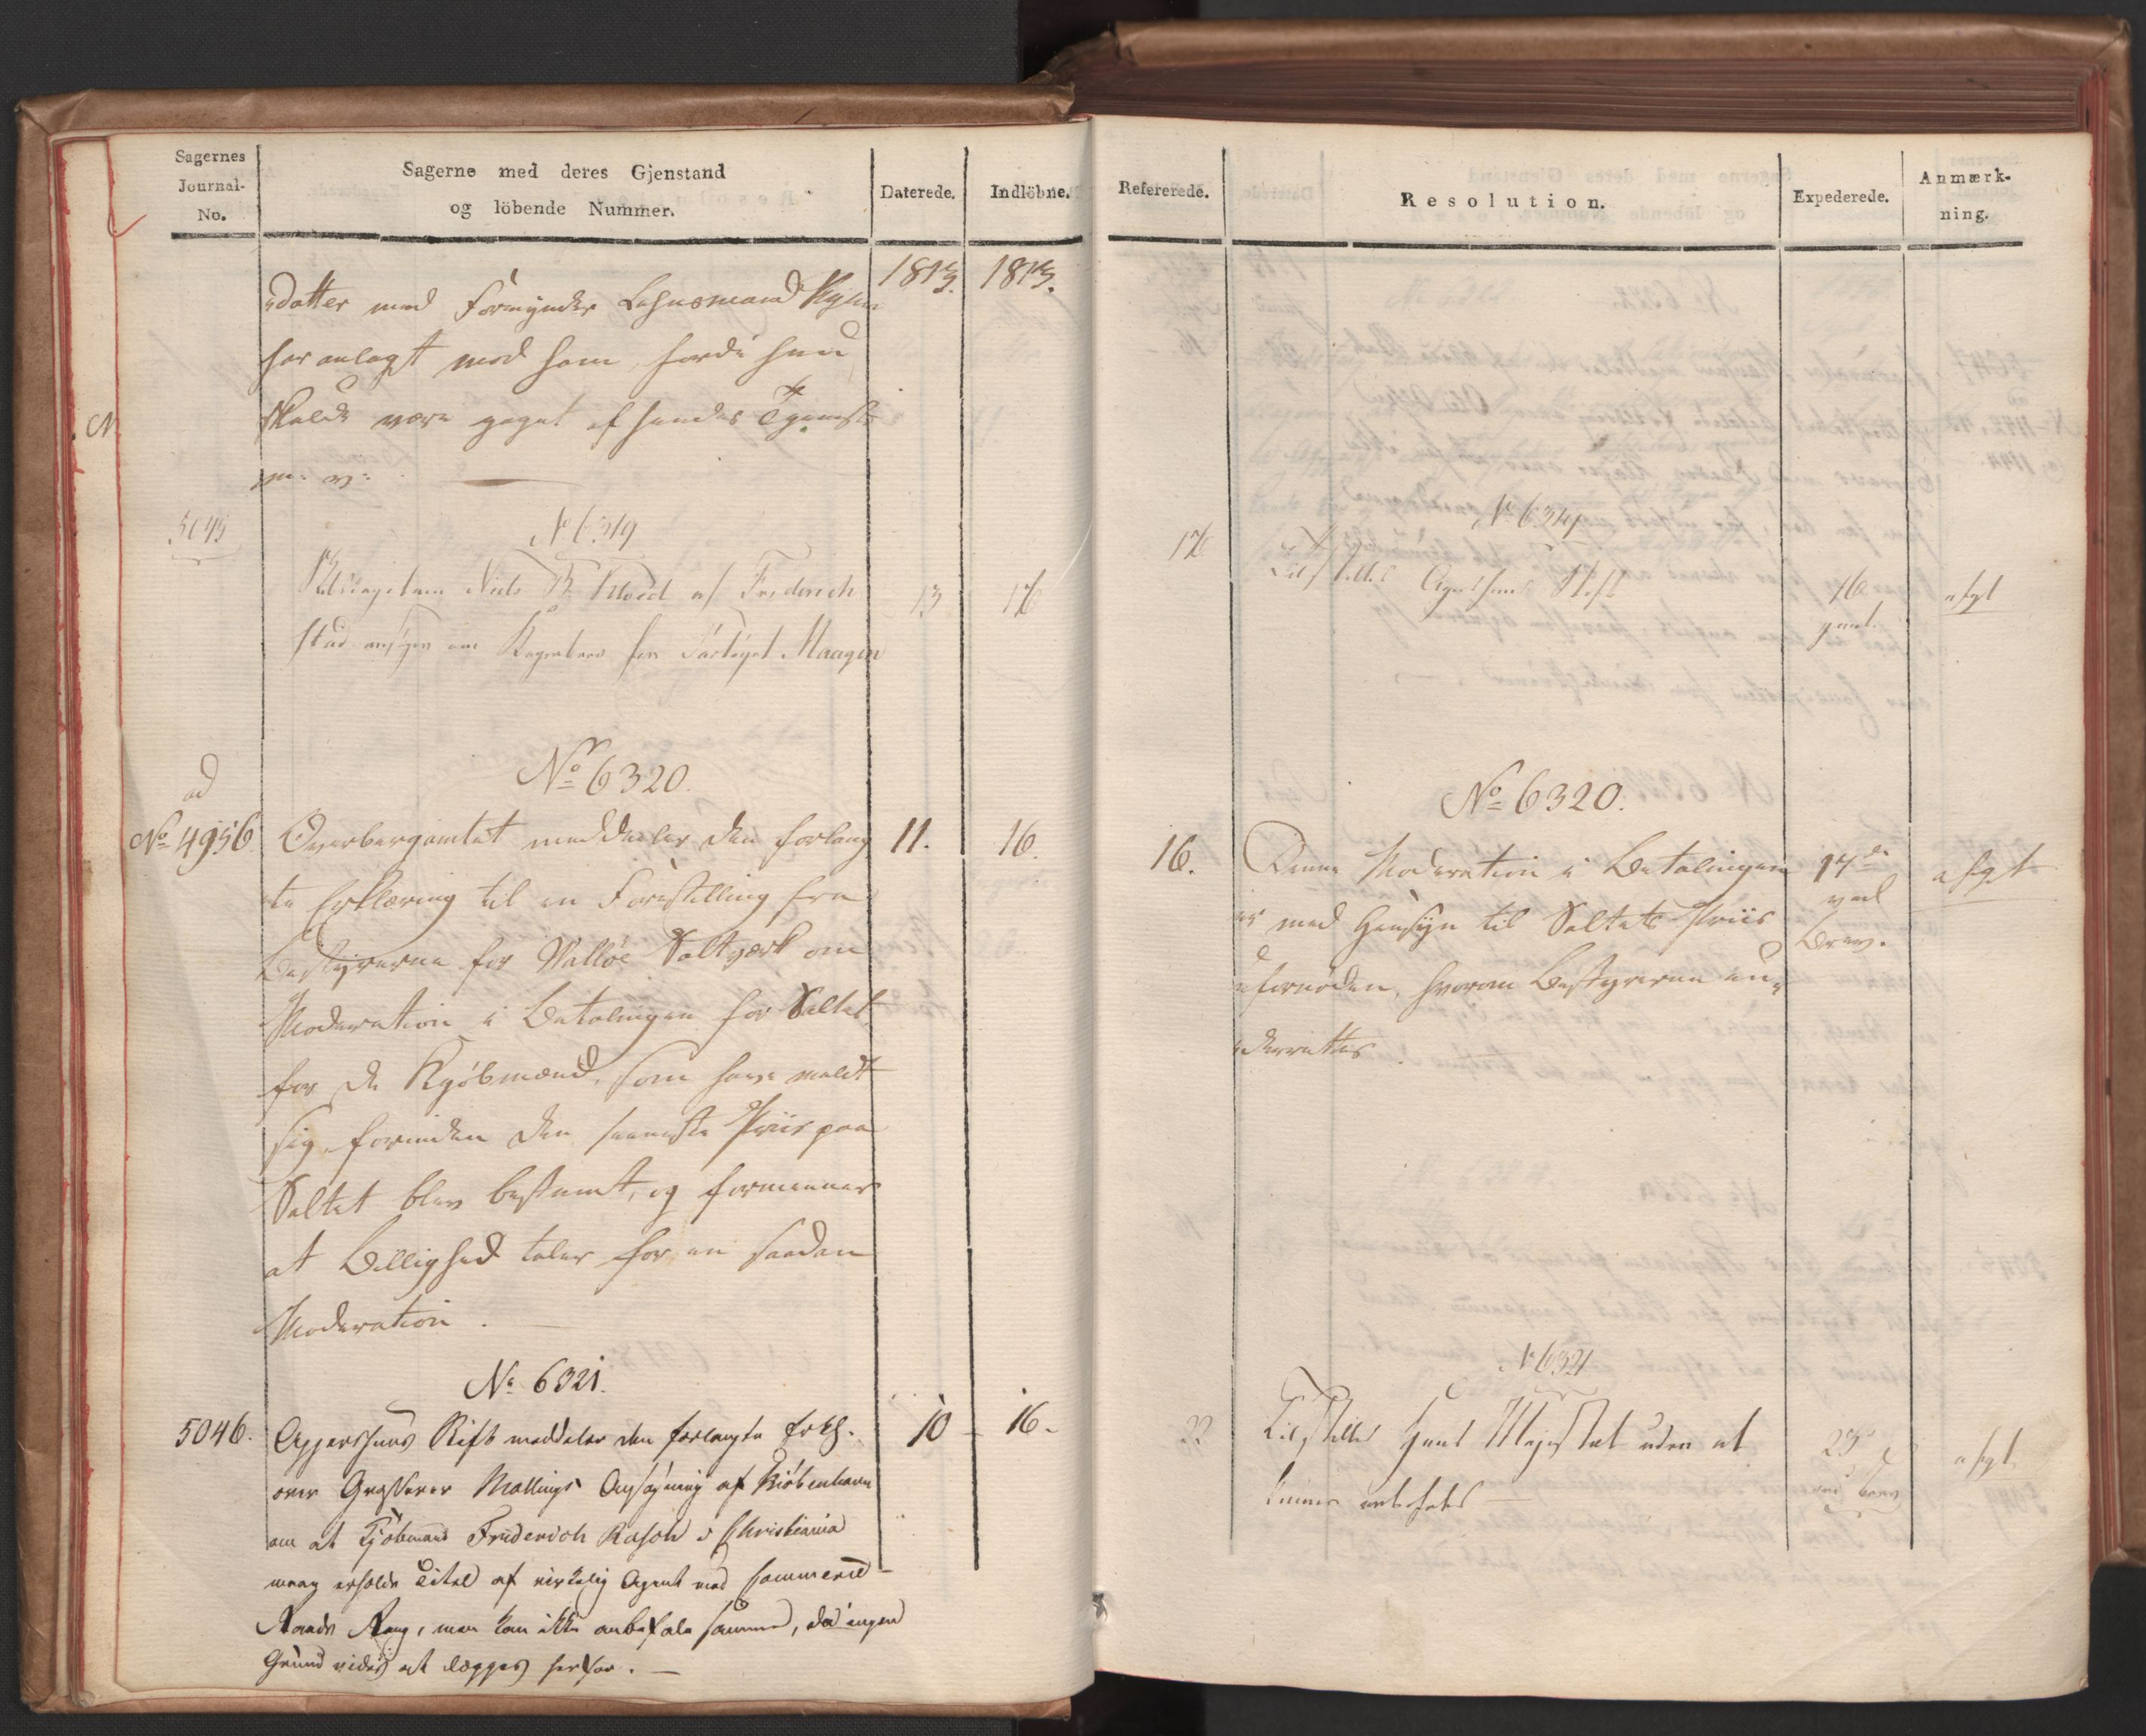 Sagernes
Journal-
No.
Sagerne med deres Gjenstand
og löbende Nummer.
Daterede.
Indlöbne.
1813.
1813.
datter med Formynder Lehnsmand
har anlagt mod ham, fordi hun
skulde være jaget af hendes Tjeneste
m: v:
5045
No 6319
Niels B. af Frederich
stad ansøger om for Fartøiet Maagen
13
16
No 6320.
ad
No 4956
Overbergamtet meddeeler den forlang
te Erklæring til en Forestilling fra
Bestyrerne for Walløe Saltværk om
Moderation i Betalingen for Saltet
for de Kjøbmænd, som have meldt
sig, forinden den seeneste Priis paa
Saltet blev bestemt, og formeener
at Billighed taler for en saadan
Moderation.
11.
16.
No 6321.
5046.
Aggershuus Stift meddeler den forlangte Erkl.
over Grosserer Mallings Ansøgning af Kiöbenhavn
om at Kjøbmand Friderich Rasch i Christiania
maa erholde Titel af virkelig Agent med Commerce
Raads Rang, men kan ikke anbefale samme, da ingen
Grund vides at lægges herfor.
10
16.
Refererede.
Resolution.
Expederede.
Anmærk-
ning.
No 6319
16
Tilstilles Agershuus Stift
16
afgt
No 6320.
16.
Denne Moderation i Betalingen
er med Hensyn til Saltets Priis
ufornøden, hvorom Bestyrerne un-
derrettes.
17de
ved
Brev.
afgt
No 6321
22
Tilstilles Hans Majestæt uden at
kunne anbefales
23
ved Brev
afgt